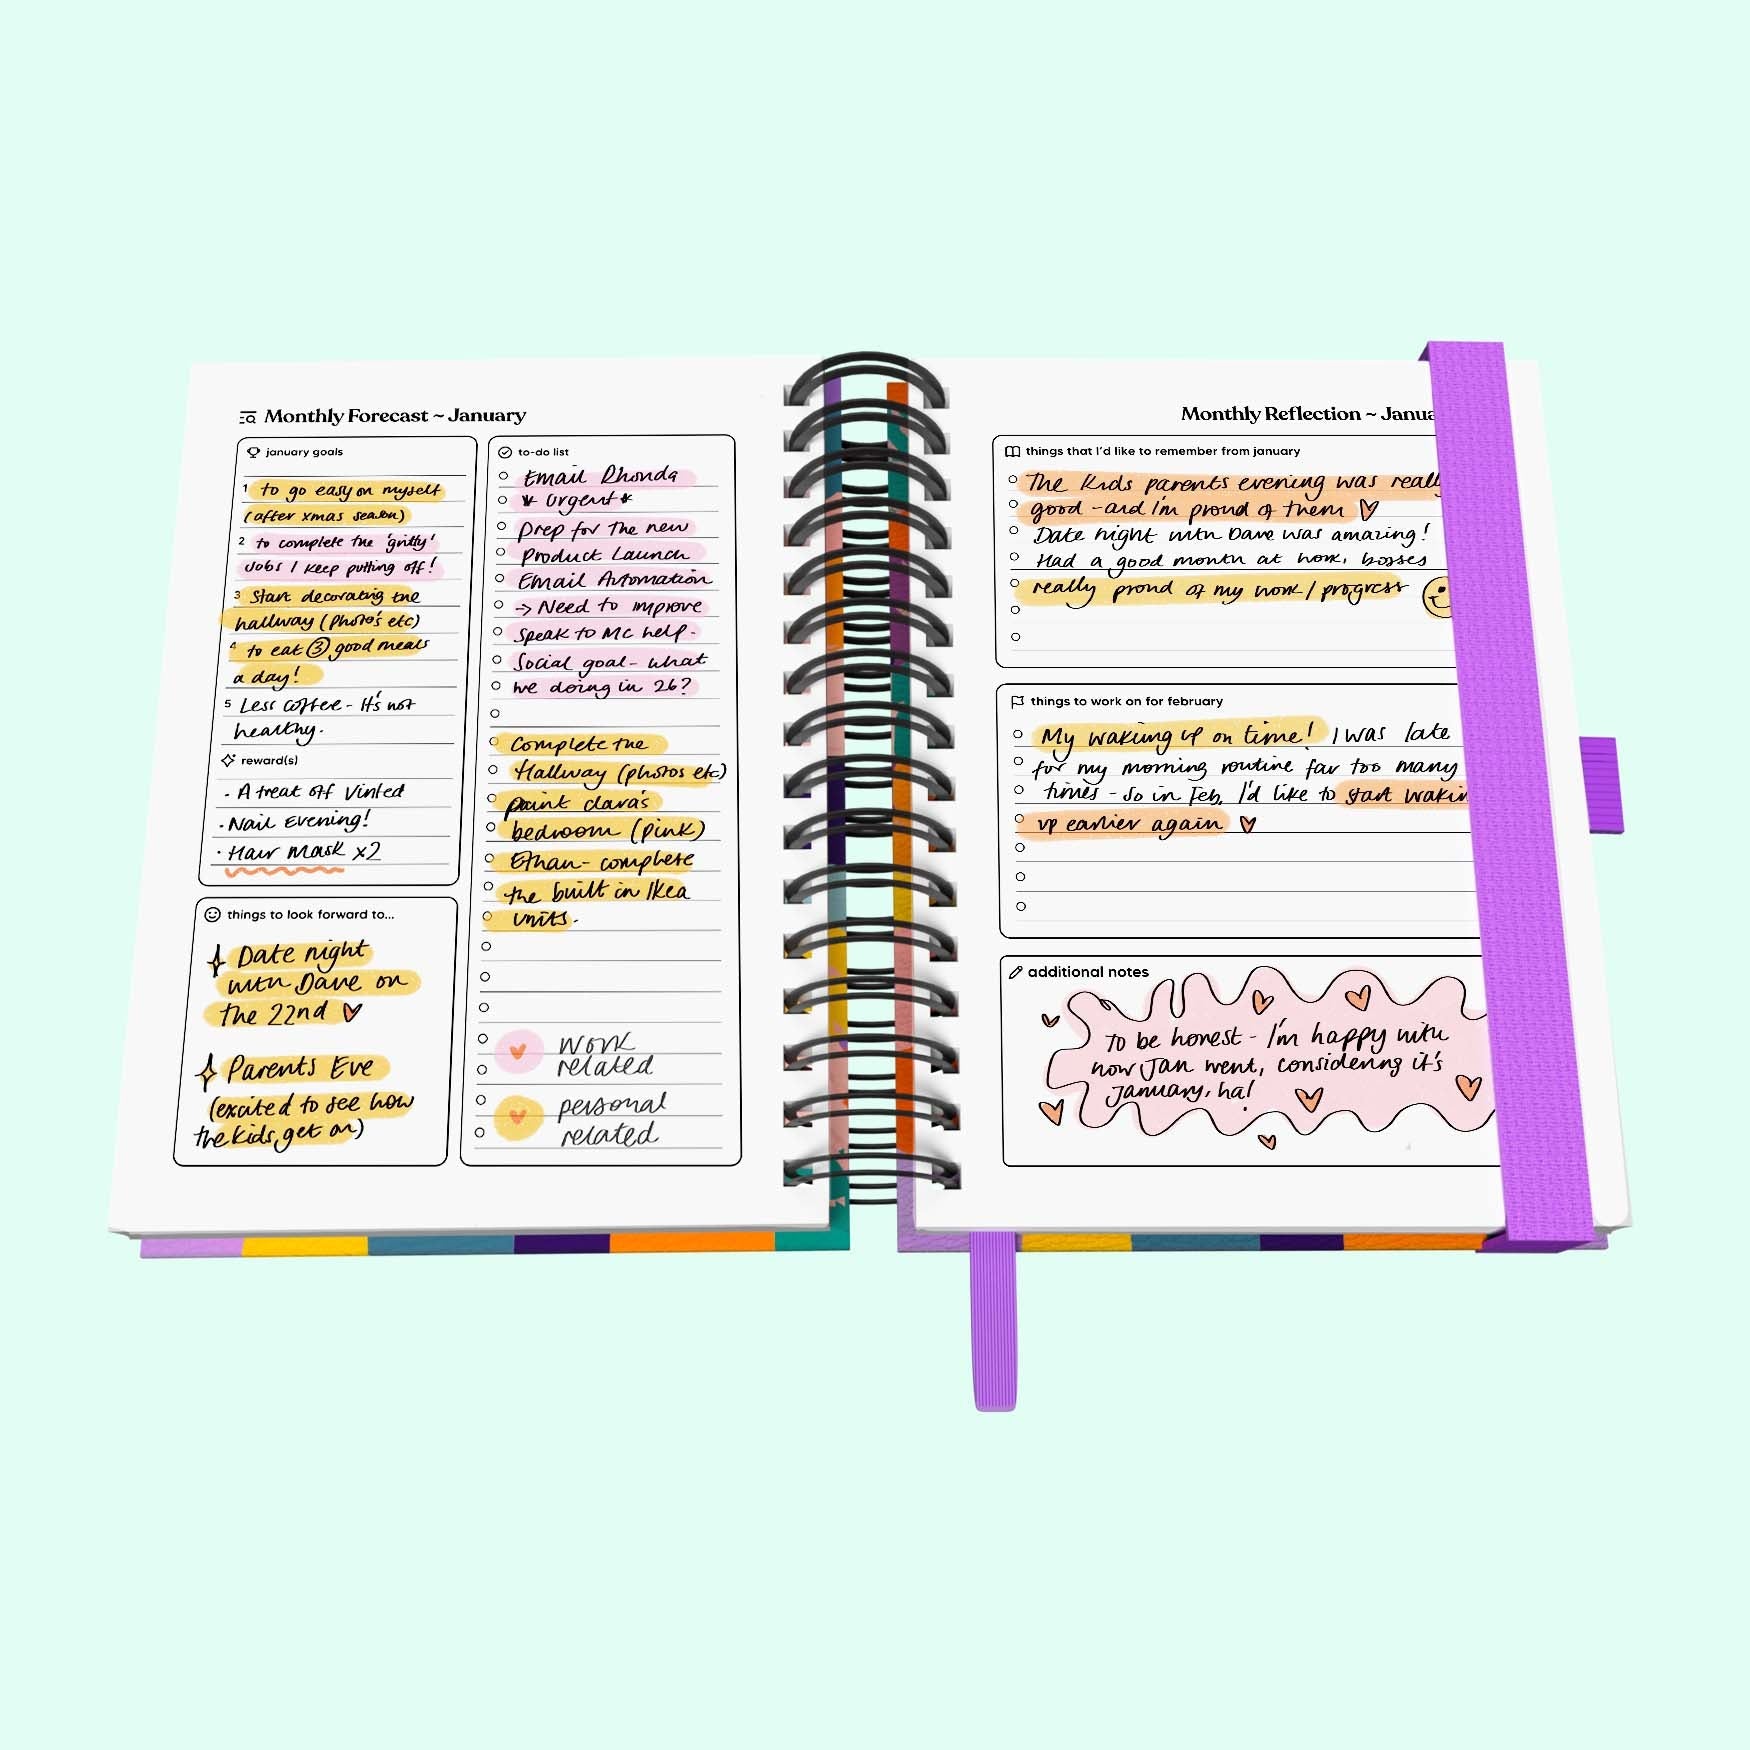 Monthly Forecast ~ January
january goals
1 to go easy on myself
(after xmas season)
2 to complete the 'gritty'
Jobs I keep putting off!
3 Start decorating the
hallway (photo's etc)
4 to eat 3 good meals
a day!
5 Less coffee - It's not
healthy.
reward(s)
· A treat off Vinted
· Nail Evening!
· Hair mask x2
things to look forward to...
Date night
with Dave on
the 22nd
Parents Eve
(excited to see how
the kids get on)
to-do list
Email Rhonda
* Urgent *
Prep for the new
Product Launch
Email Automation
-> Need to improve
speak to MC help.
Social goal - what
we doing in 26?
Complete the
Hallway (photos etc)
paint clara's
bedroom (pink)
Ethan - complete
the built in Ikea
units.
work
related
personal
related
Monthly Reflection ~ Janua
things that I'd like to remember from january
The kids parents evening was really
good - and I'm proud of them
Date night with Dave was amazing!
Had a good month at work, bosses
really proud of my work / progress
things to work on for february
My waking up on time! I was late
for my morning routine far too many
times - so in Feb, I'd like to start wakin
up earlier again
additional notes
To be honest - I'm happy with
how Jan went, considering it's
January, ha!